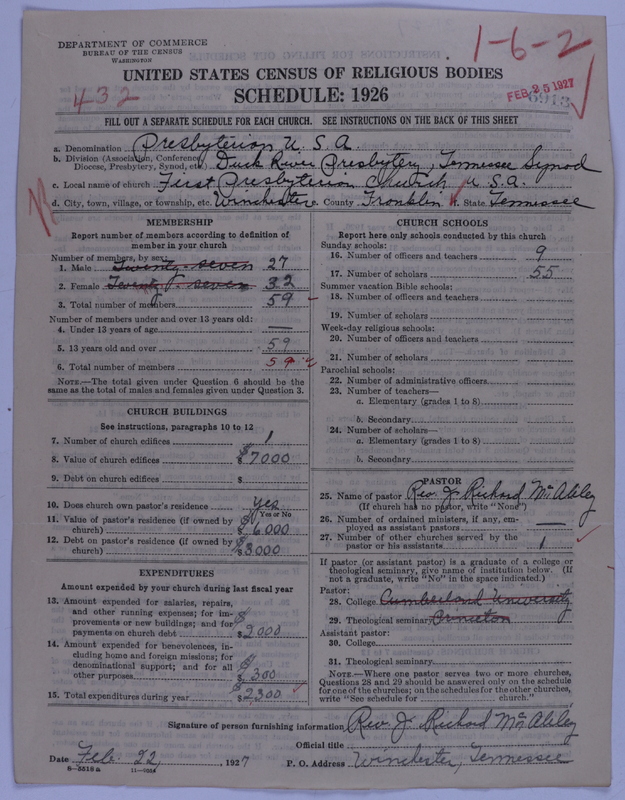 DEPARTMENT OF COMMERCE
BUREAU OF THE CENSUS
WASHINGTON
1-6-2
432
FEB 25 1927
6913
UNITED STATES CENSUS OF RELIGIOUS BODIES
SCHEDULE: 1926
FILL OUT A SEPARATE SCHEDULE FOR EACH CHURCH. SEE INSTRUCTIONS ON THE BACK OF THIS SHEET
a. Denomination Presbyterian U. S. A.
b. Division (Association, Conference, Diocese, Presbytery, Synod, etc.) Duck River Presbytery, Tennessee Synod
c. Local name of church First Presbyterian Church U. S. A.
d. City, town, village, or township, etc. Winchester e. County Franklin f. State Tennessee
MEMBERSHIP
Report number of members according to definition of
member in your church
Number of members, by sex:
1. Male Twenty-seven 27
2. Female Twenty-seven 32
3. Total number of members 59
Number of members under and over 13 years old:
4. Under 13 years of age —
5. 13 years old and over 59
6. Total number of members 59
NOTE.—The total given under Question 6 should be
same as the total of males and females given under Question 3.
CHURCH BUILDINGS
See instructions, paragraphs 10 to 12
7. Number of church edifices 1
8. Value of church edifices $7000
9. Debt on church edifices $
10. Does church own pastor's residence yes
Yes or No
11. Value of pastor's residence (if owned by
church) $6,000
12. Debt on pastor's residence (if owned by
church) $3,000
EXPENDITURES
Amount expended by your church during last fiscal year
13. Amount expended for salaries, repairs,
and other running expenses; for im-
provements or new buildings; and for
payments on church debt $2000
14. Amount expended for benevolences, in-
cluding home and foreign missions; for
denominational support; and for all
other purposes $300
15. Total expenditures during year $2,300
CHURCH SCHOOLS
Report here only schools conducted by this church
Sunday schools:
16. Number of officers and teachers 9
17. Number of scholars 55
Summer vacation Bible schools:
18. Number of officers and teachers
19. Number of scholars
Week-day religious schools:
20. Number of officers and teachers
21. Number of scholars
Parochial schools:
22. Number of administrative officers
23. Number of teachers—
a. Elementary (grades 1 to 8)
b. Secondary
24. Number of scholars—
a. Elementary (grades 1 to 8)
b. Secondary
PASTOR
25. Name of pastor Rev. J. Richard
(If church has no pastor, write "None")
26. Number of ordained ministers, if any, em-
ployed as assistant pastors —
27. Number of other churches served by the
pastor or his assistants 1
If pastor (or assistant pastor) is a graduate of a college or
theological seminary, give name of institution below. (If
not a graduate, write "No" in the space indicated.)
Pastor:
28. College Cumberland University
29. Theological seminary Princeton
Assistant pastor:
30. College
31. Theological seminary
NOTE.—Where one pastor serves two or more churches,
Questions 28 and 29 should be answered only on the schedule
for one of the churches; on the schedules for the other churches,
write "See schedule for church."
Signature of person furnishing information Rev. J. Richard
Official title
Date Feb. 22, 1927 P. O. Address Winchester, Tennessee
8—5518 a 11—9024